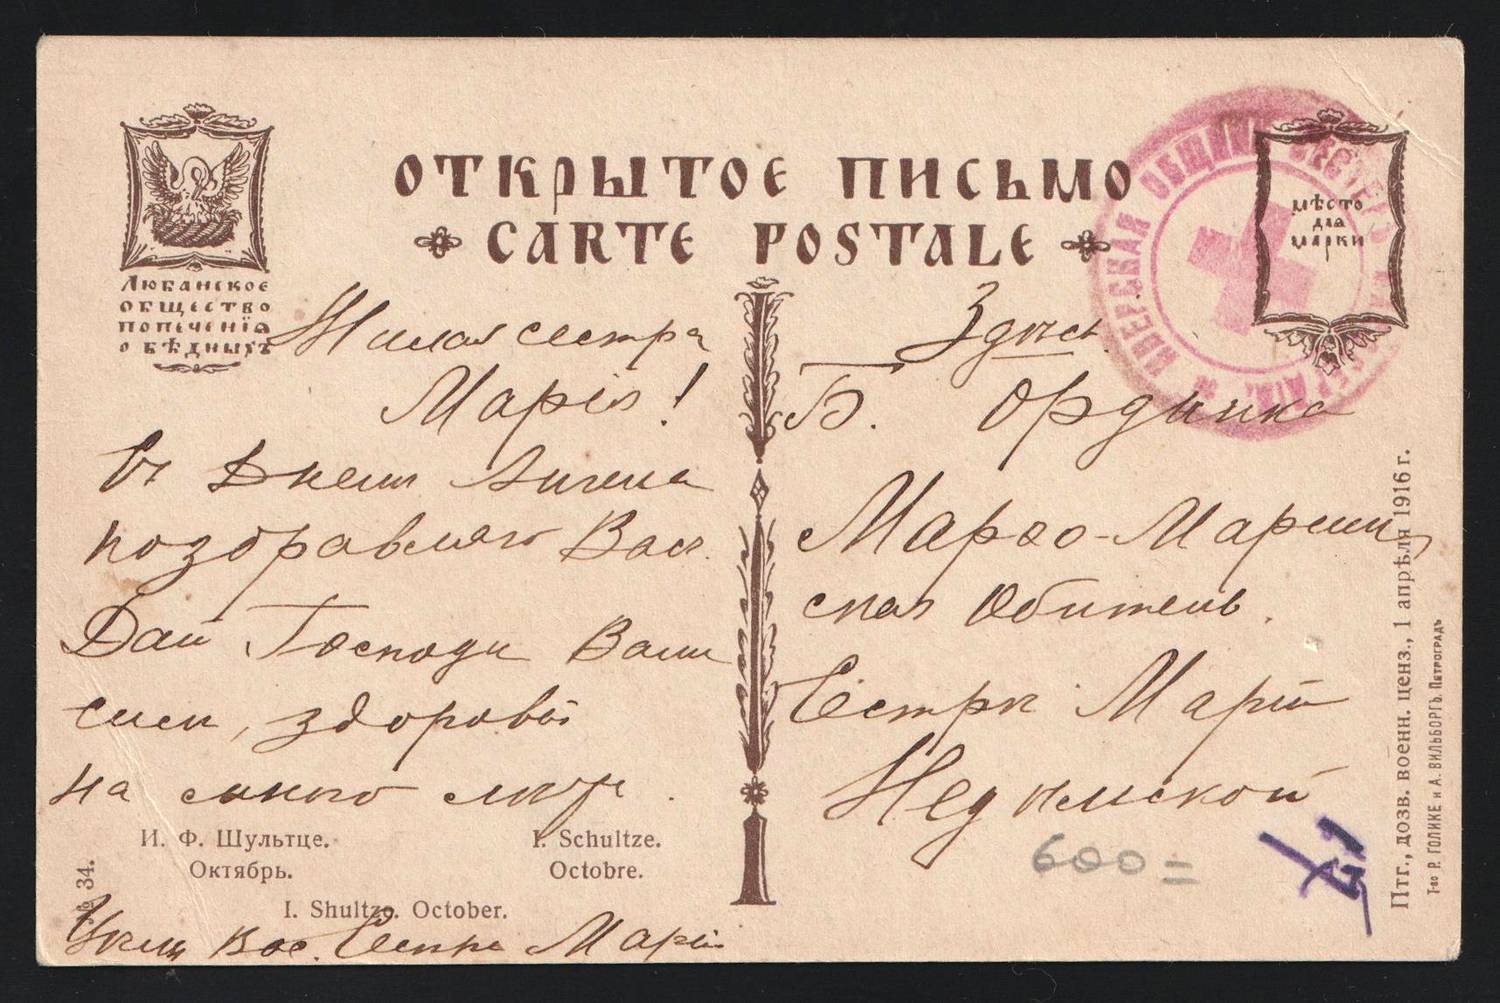 ОТКРЫТОЕ ПИСЬМО
CARTE POSTALE
Любанское
общество
попеченія
о бѣдныхъ
мѣсто
для
марки
ИВЕРСКАЯ ОБЩИНА СЕСТЕРЪ
Милая сестра
Марія!
Съ Днемъ Ангела
поздравляю Васъ.
Дай Господи Вамъ
силы, здоровья
на много лѣтъ.
Здѣсь.
Б. Ордынка
Марѳо-Маріин
ская Обитель.
Сестрѣ Маріи
Недымской
600=
И. Ф. Шультце.
Октябрь.
I. Schultze.
Octobre.
I. Shultze. October.
№ 34.
Вас. Сестра Марія
Птг., дозв. военн. ценз., 1 апрѣля 1916 г.
Т-во Р. ГОЛИКЕ и А. ВИЛЬБОРГЪ. Петроградъ